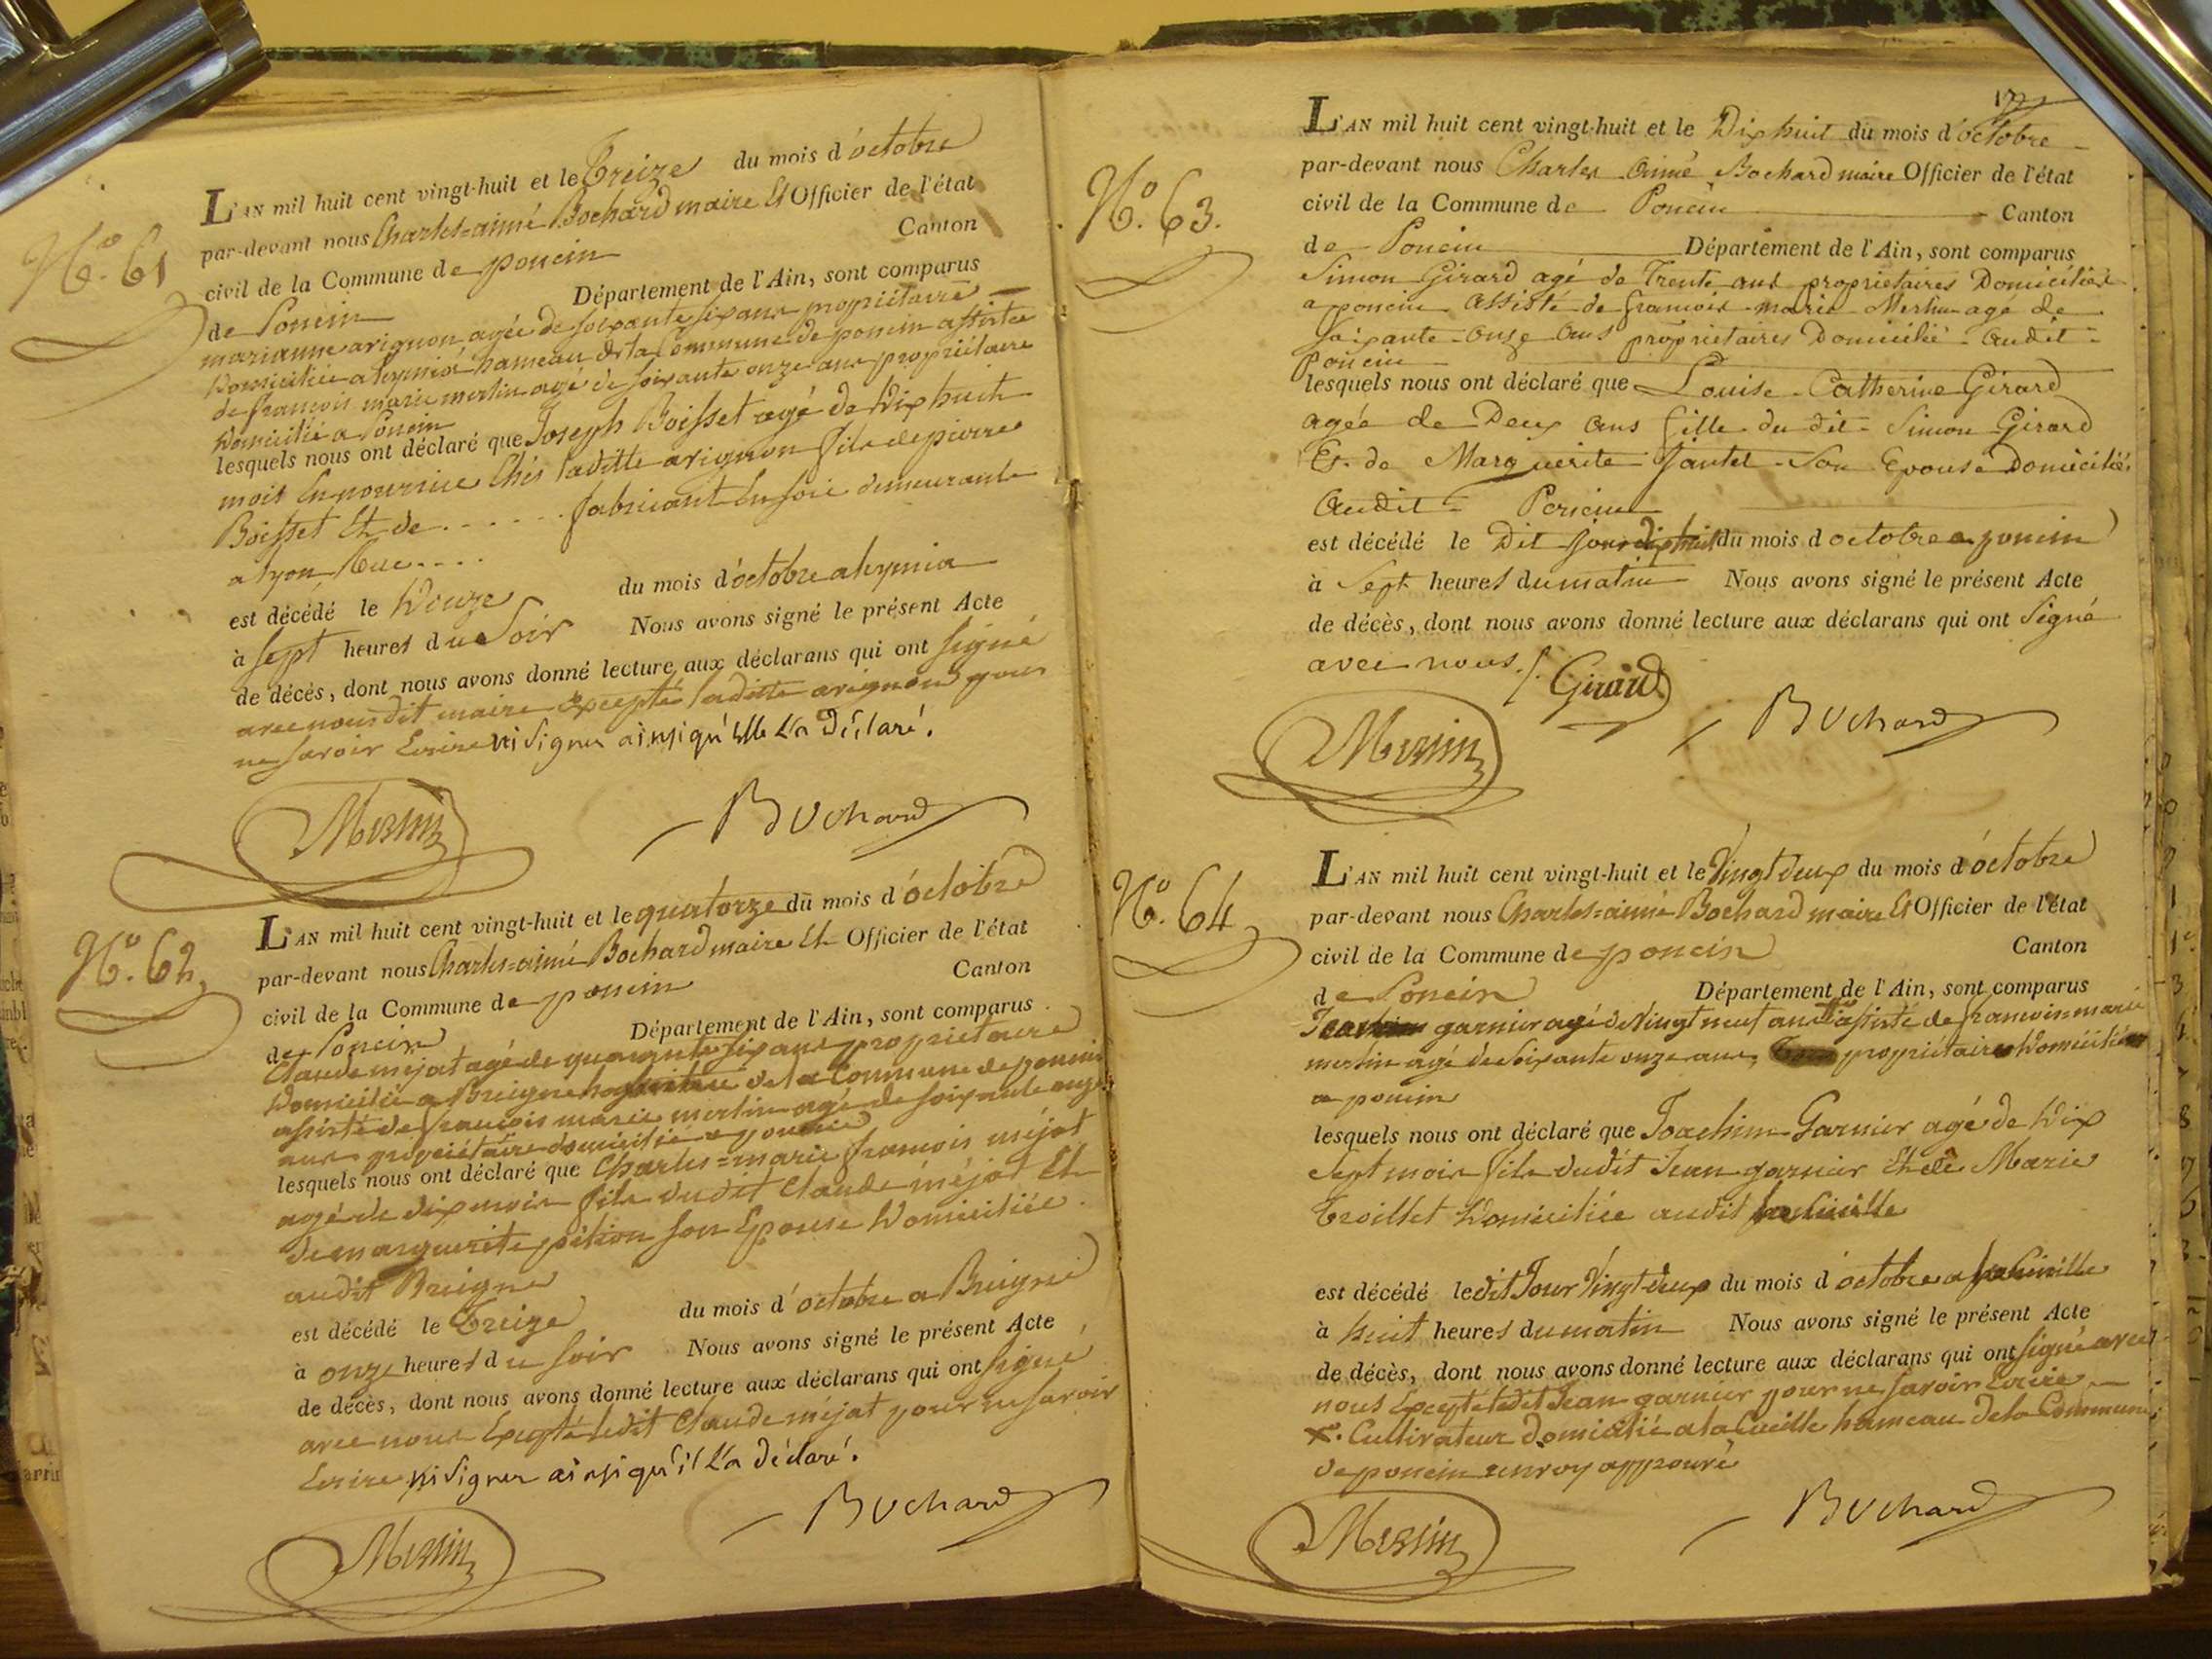 No. 61
L'AN mil huit cent vingt-huit et le Treize du mois d'octobre
par-devant nous Charles=aimé Bochard maire Et Officier de l'état
civil de la Commune de poncin Canton
de Poncin Département de l'Ain, sont comparus
marianne arignon agée de soixante six ans propriétaire
Domiciliée a hameau de la Commune de poncin assistée
de françois marie merlin agé de soixante onze ans propriétaire
Domicilié a Poncin
lesquels nous ont déclaré que Joseph Boisset agé de Dix huit
mois En nourrice Chés laditte arignon fils de pierre
Boisset Et de . . . . . . fabricant En soie demeurant
a lyon Rue . . . .
est décédé le Douze du mois d'octobre a
à sept heures du Soir Nous avons signé le présent Acte
de décès, dont nous avons donné lecture aux déclarans qui ont signé
avec nous dit maire Excepté laditte arignon pour
ne savoir Ecrire ni Signer ainsi qu'Elle L'a Déclaré.
Merlin
Bochard
No. 62
L'AN mil huit cent vingt-huit et le quatorze du mois d'octobre
par-devant nous Charles=aimé Bochard maire Et Officier de l'état
civil de la Commune de poncin Canton
de Poncin Département de l'Ain, sont comparus
Claude méjat agé de quarante six ans propriétaire
Domicilié a Breigne de la Commune de poncin
assisté de françois marie merlin agé de soixante onze
ans propriétaire domicilié a poncin
lesquels nous ont déclaré que Charles=marie françois méjat
agé de dix mois fils dudit Claude méjat Et
de marguerite pition son Epouse Domiciliée
audit Breigne
est décédé le Treize du mois d'octobre a Breigne
à onze heures du soir Nous avons signé le présent Acte
de décès, dont nous avons donné lecture aux déclarans qui ont signé
avec nous Excepté ledit Claude méjat pour ne savoir
Ecrire ni Signer ainsi qu'il L'a déclaré.
Merlin
Bochard
17
No. 63.
L'AN mil huit cent vingt-huit et le Dix huit du mois d'octobre
par-devant nous Charles Aimé Bochard maire Officier de l'état
civil de la Commune de Poncin Canton
de Poncin Département de l'Ain, sont comparus
Simon Girard agé de Trente ans propriétaires Domiciliés
a poncin assisté de francois marie Merlin agé de
soixante-onze ans propriétaires Domicilié audit
Poncin
lesquels nous ont déclaré que Louise Catherine Girard
agée de Deux ans fille du dit Simon Girard
Et de Marguerite Jantet Son Epouse Domiciliés
Audit Poncin
est décédé le Dit jour dixhuit du mois d octobre a poncin
à Sept heures du matin Nous avons signé le présent Acte
de décès, dont nous avons donné lecture aux déclarans qui ont Signé
avec nous. Girard
Merlin
Bochard
No. 64
L'AN mil huit cent vingt-huit et le Vingt deux du mois d'octobre
par-devant nous Charles=aimé Bochard maire Et Officier de l'état
civil de la Commune de poncin Canton
de Poncin Département de l'Ain, sont comparus
Jean garnier agé de Vingt neuf ans assisté de francois=marie
merlin agé de Soixante onze ans, propriétaire Domicilié
a poncin
lesquels nous ont déclaré que Joachim Garnier agé de Dix
Sept mois fils dudit Jean garnier Et de Marie
Troillet Domiciliée audit la Cueille
est décédé ledit Jour Vingt deux du mois d'octobre a la Cueille
à huit heures du matin Nous avons signé le présent Acte
de décès, dont nous avons donné lecture aux déclarans qui ont signé avec
nous Excepté ledit Jean garnier pour ne savoir Ecrire
x. Cultivateur Domicilié a la Cueille hameau de la Commune
de poncin renvoy approuvé
Merlin
Bochard